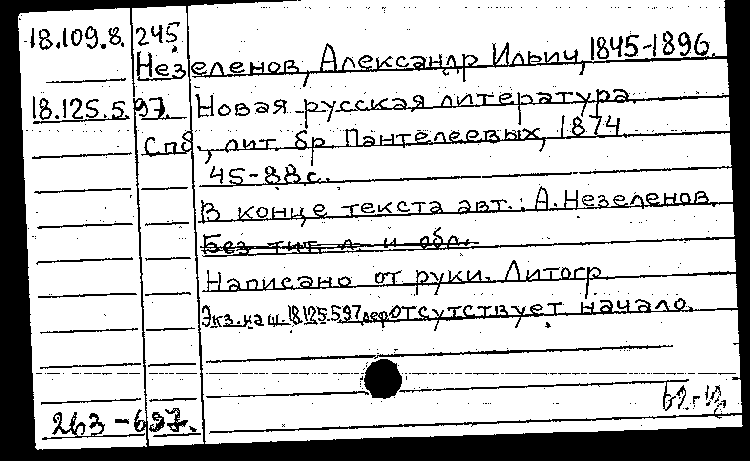 18.109.8.245.
Незеленов, Александр Ильич, 1845-1896.
18.125.5.97. Новая русская литература.
Спб., лит. бр. Пантелеевых, 1874
45-88 с.
В конце текста авт.: А. Незеленов.
Без тит. л. и обл.
Написано от руки. Литогр.
Экз. на ш. 18.125.5.97 деф. отсутствует начало.
263-697.